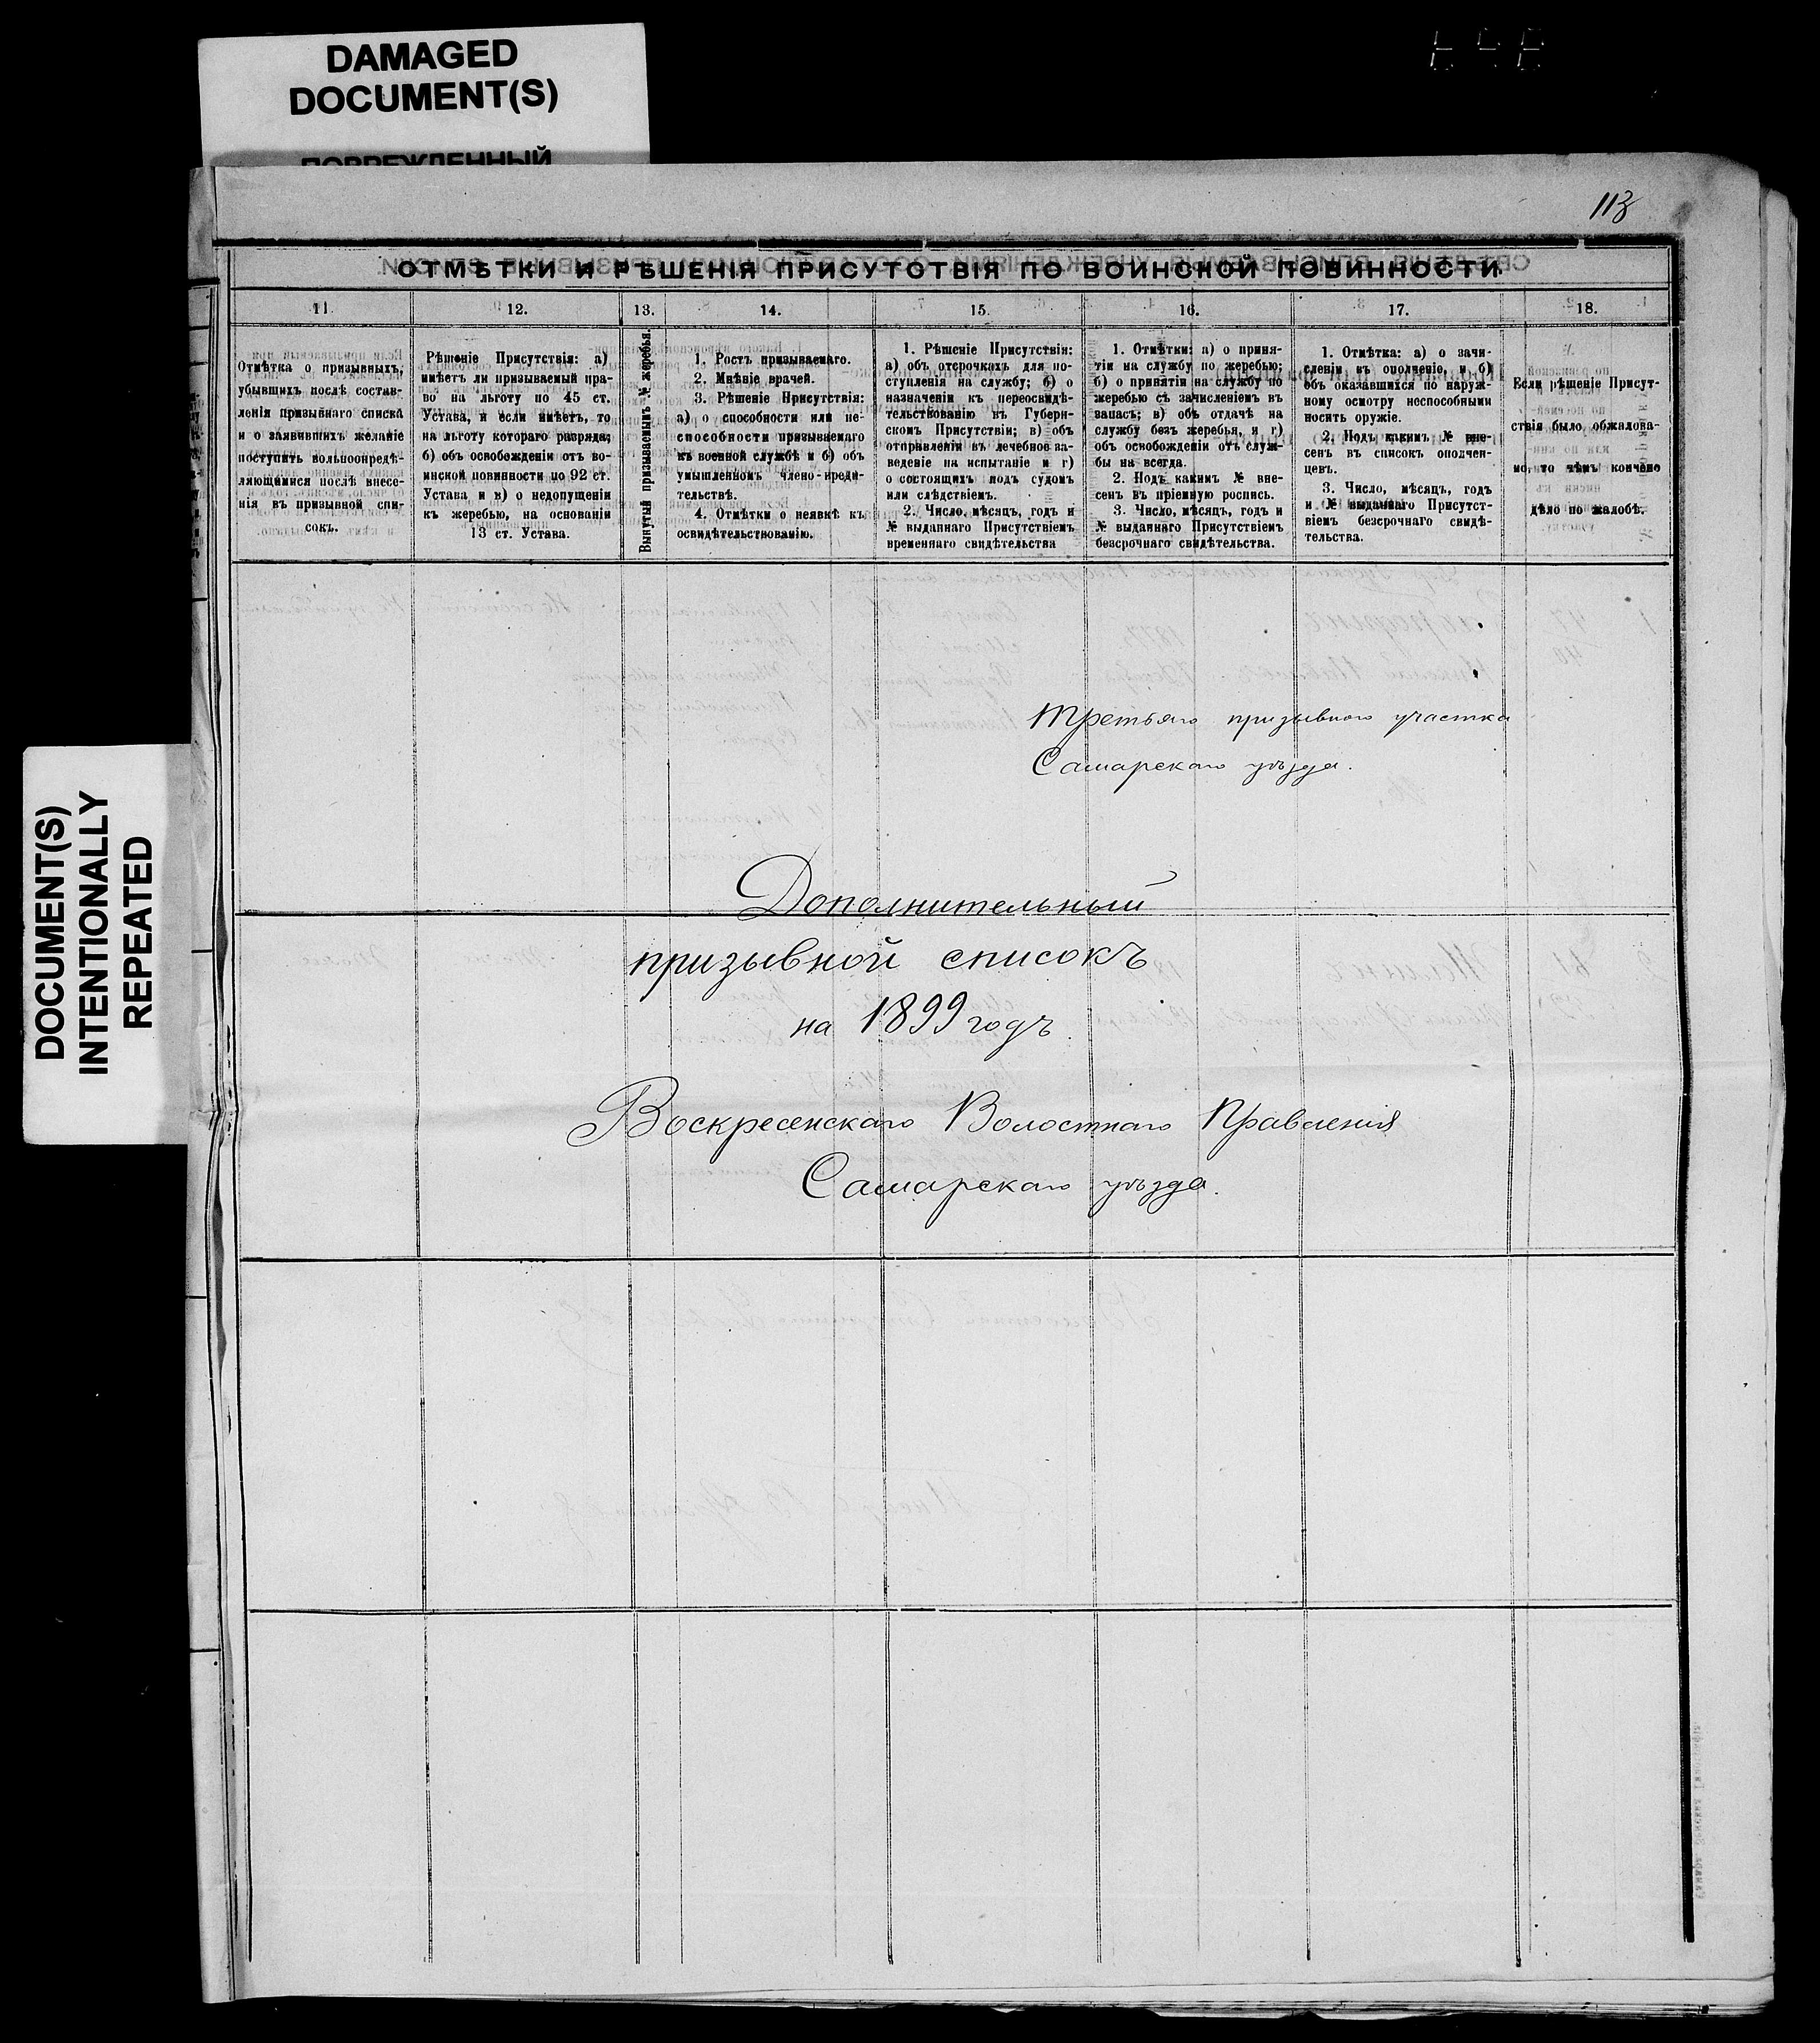 DAMAGED
DOCUMENT(S)
ПОВРЕЖДЕННЫЙ
DOCUMENT(S)
INTENTIONALLY
REPEATED
113
ОТМѢТКИ И РѢШЕНІЯ ПРИСУТСТВІЯ ПО ВОИНСКОЙ ПОВИННОСТИ.
11. 12. 13. 14. 15. 16. 17. 18.
Отмѣтка о призывныхъ,
убывшихъ послѣ состав-
ленія призывнаго списка
и о заявившихъ желаніе
поступить вольноопредѣ-
ляющимися послѣ внесе-
нія въ призывной спи-
сокъ.
Рѣшеніе Присутствія: а)
имѣетъ ли призываемый пра-
во на льготу по 45 ст.
Устава, и если имѣетъ, то
на льготу котораго разряда;
б) объ освобожденіи отъ во-
инской повинности по 92 ст.
Устава и в) о недопущеніи
къ жеребью, на основаніи
13 ст. Устава.
Вынутый призываемымъ № жеребья.
1. Ростъ призываемаго.
2. Мнѣніе врачей.
3. Рѣшеніе Присутствія:
а) о способности или не-
способности призываемаго
къ военной службѣ и б) объ
умышленномъ члено-вреди-
тельствѣ.
4. Отмѣтки о неявкѣ къ
освидѣтельствованію.
1. Рѣшеніе Присутствія:
а) объ отсрочкахъ для по-
ступленія на службу; б) о
назначеніи къ переосвидѣ-
тельствованію въ Губерн-
скомъ Присутствіи; в) объ
отправленіи въ лечебное за-
веденіе на испытаніе и г)
о состоящихъ подъ судомъ
или слѣдствіемъ.
2. Число, мѣсяцъ, годъ и
№ выданнаго Присутствіемъ
временнаго свидѣтельства
1. Отмѣтки: а) о приня-
тіи на службу по жеребью;
б) о принятіи на службу по
жеребью съ зачисленіемъ въ
запасъ; в) объ отдачѣ на
службу безъ жеребья, и г)
объ освобожденіи отъ служ-
бы на всегда.
2. Подъ какимъ № вне-
сенъ въ пріемную роспись.
3. Число, мѣсяцъ, годъ и
№ выданнаго Присутствіемъ
безсрочнаго свидѣтельства.
1. Отмѣтка: а) о зачи-
сленіи въ ополченіе, и б)
объ оказавшихся по наруж-
ному осмотру неспособными
носить оружіе.
2. Подъ какимъ № вне-
сенъ въ списокъ ополчен-
цевъ.
3. Число, мѣсяцъ, годъ
и № выданнаго Присутст-
віемъ безсрочнаго свидѣ-
тельства.
Если рѣшеніе Присут-
ствія было обжалова-
но, то чѣмъ кончено
дѣло по жалобѣ.
Третьяго призывнаго участка
Самарскаго уѣзда.
Дополнительный
призывной списокъ
на 1899 годъ.
Воскресенскаго Волостнаго Правленія
Самарскаго уѣзда.